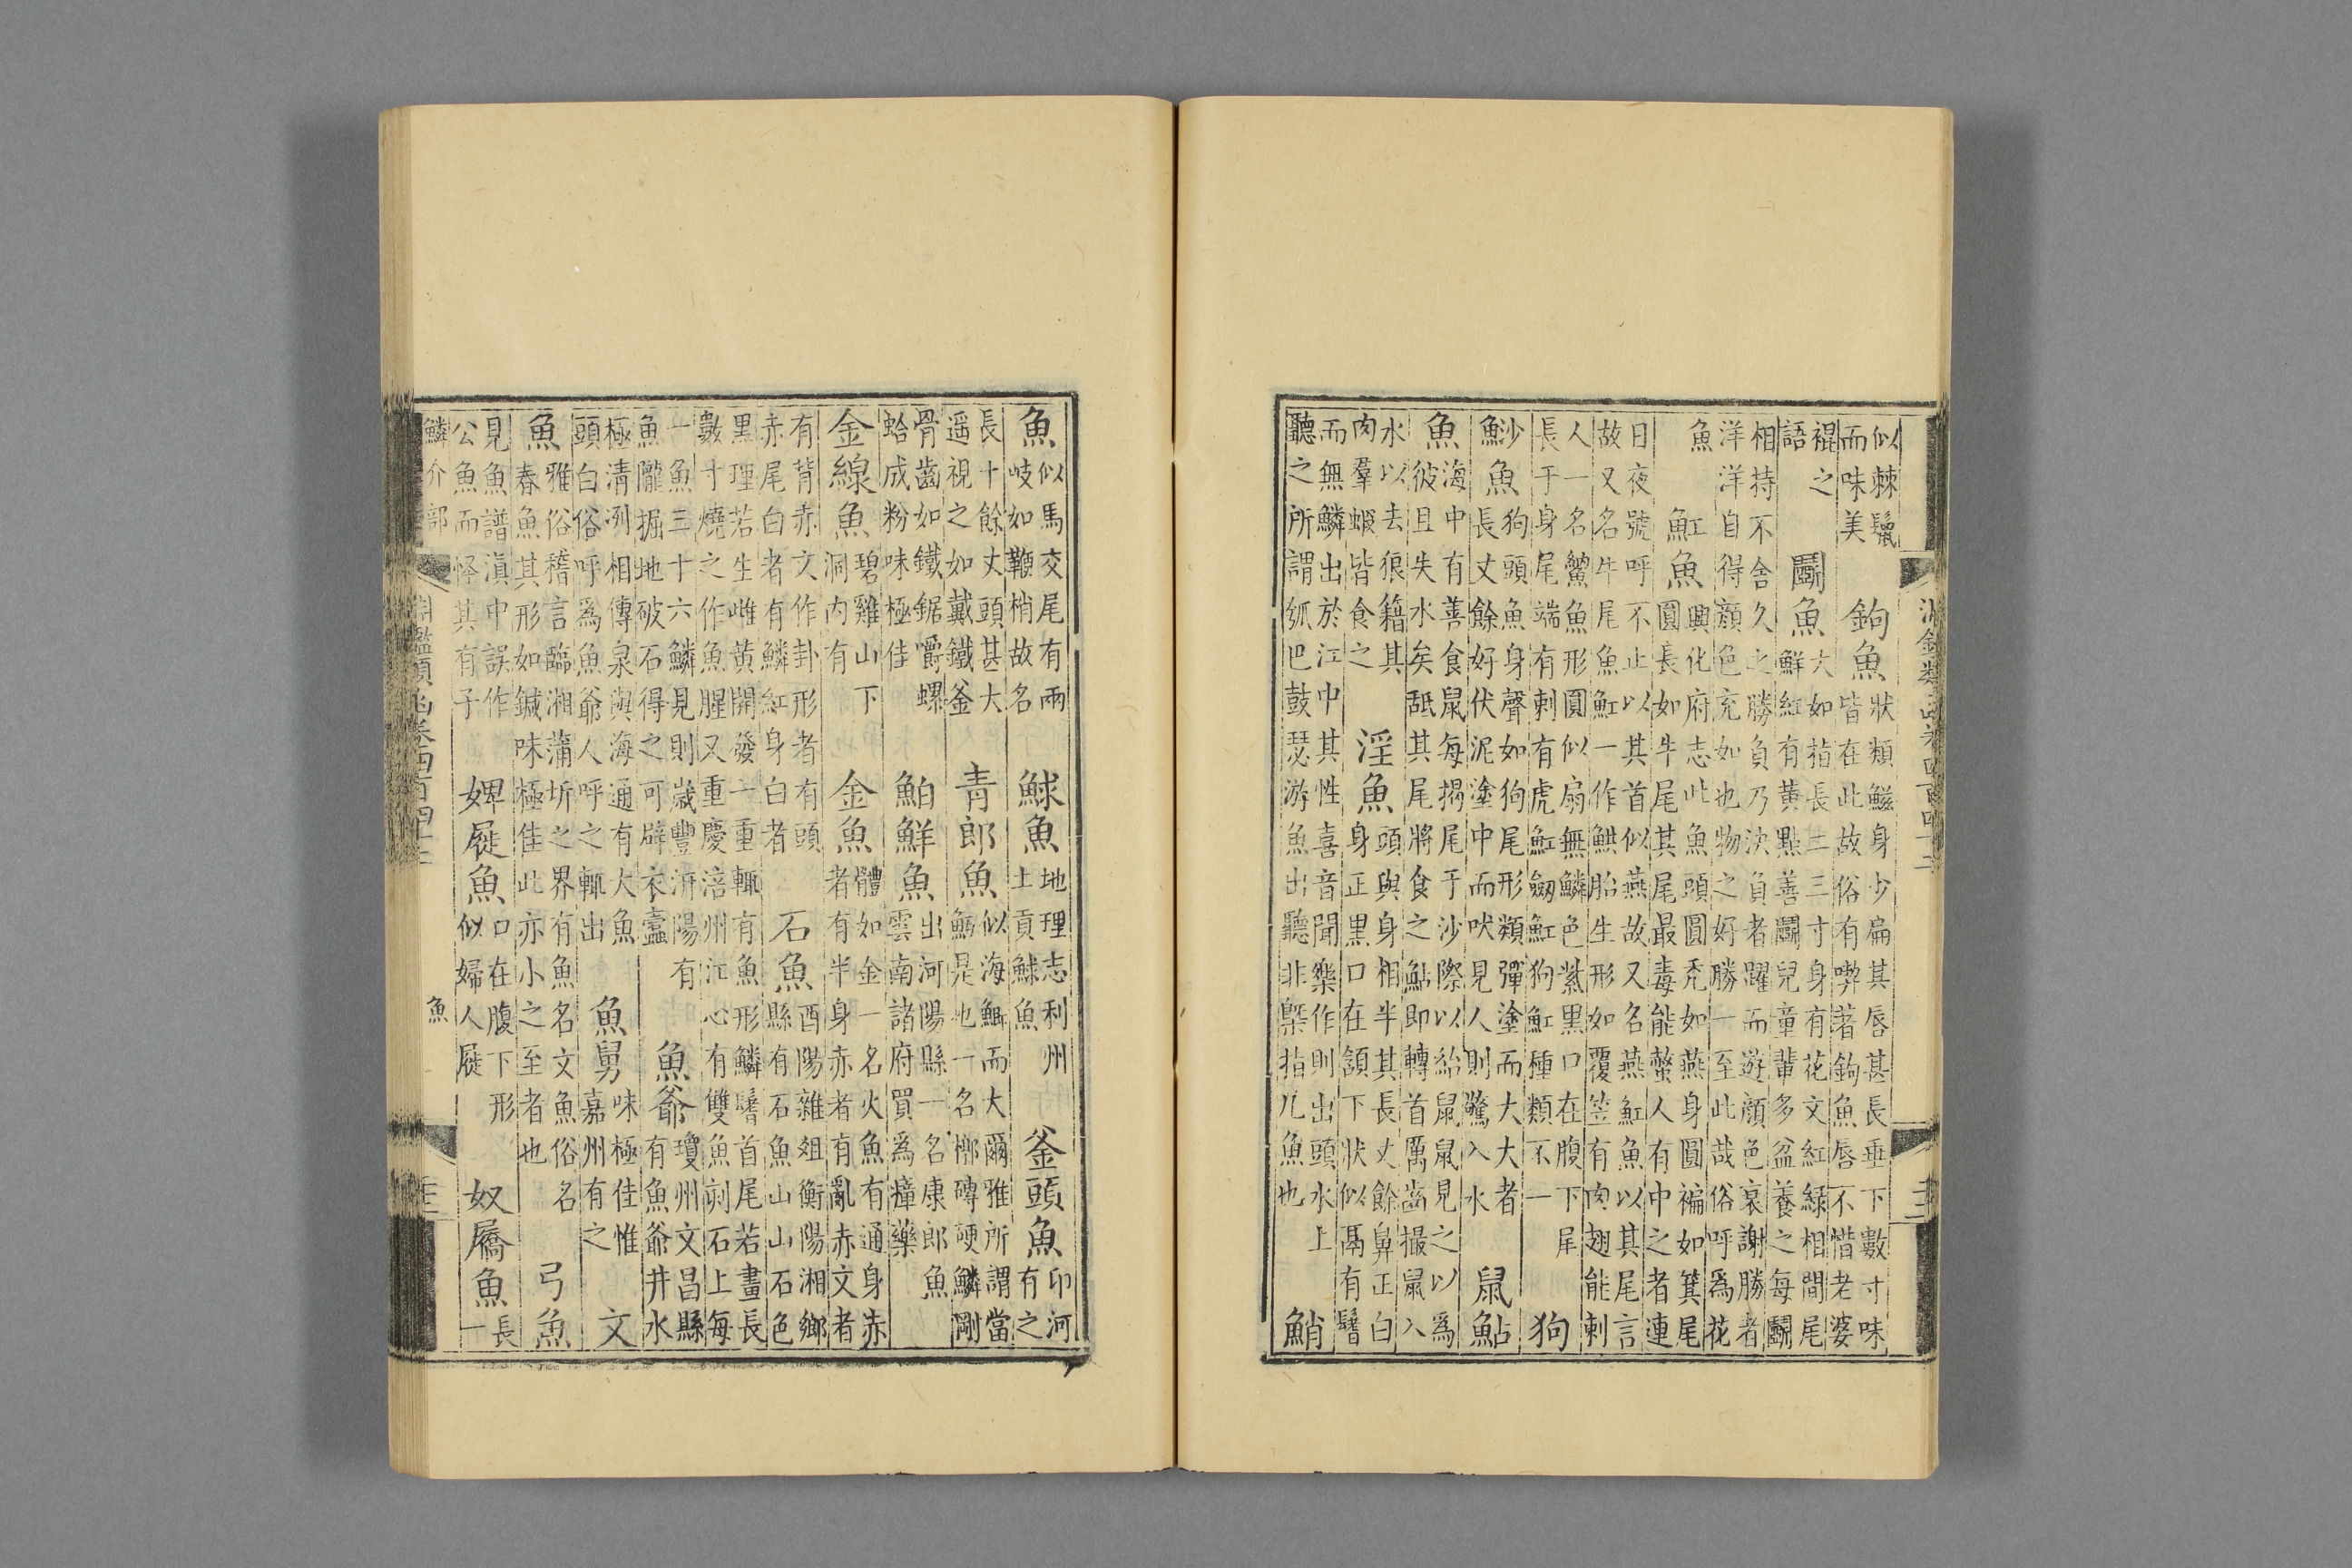 似棘鬛而味美鉤魚狀類鱲身少扁其唇甚長垂下數寸味皆在此故俗有㗸著鉤魚唇不惜老婆
裩之語鬭魚大如指長二三寸身有花文紅綠相間尾鮮紅有黃點善鬭兒童輩多盆養之每鬭
相持不舍久之勝負乃決負者躍而遊顏色衰謝勝者洋洋自得顏色充如也物之好勝一至此哉俗呼爲花
魚魟魚興化府志此魚頭圓禿如燕身圓褊如箕尾圓長如牛尾其尾最毒能螫人有中之者連
日夜號呼不止以其首似燕故又名燕魟魚以其尾言故又名牛尾魚魟一作鮙胎生形如覆笠有肉翅能刺
人一名魚形圓似扇無鱗色紫黑口在腹下尾長于身尾端有刺有虎魟魟狗魟種類不一狗
魦魚狗頭魚身聲如狗尾形類彈塗而大大者長丈餘好伏泥塗中而吠見人則驚入水鼠鮎
魚海中有善食鼠每揭尾于沙際以紿鼠鼠見之以爲彼且失水矣舐其尾將食之鮎即轉首厲齒撮鼠入
水以去狼籍其肉羣蝦皆食之淫魚頭與身相半其長丈餘鼻正白身正黑口在頷下狀似鬲有鬐
而無鱗出於江中其性喜音聞樂作則出頭水上聽之所謂瓠巴鼓瑟游魚出聽非槩指凡魚也鮹
魚似馬交尾有兩岐如鞭梢故名鯄魚地理志利州土貢鯄魚釜頭魚印河有之
長十餘丈頭甚大遥視之如戴鐵釜青郎魚似海鰤而大爾雅所謂當魱是也一名槨磚硬鱗剛
骨齒如鐵鋸嚼螺蛤成粉味極佳鮊鮮魚出河陽縣一名康郎魚雲南諸府買爲瘴藥
金線魚碧雞山下洞内有金魚體如金一名火魚有通身赤者有半身赤者有亂赤文者
有背赤文作卦形者有頭赤尾白者有鱗紅身白者石魚酉陽雜俎衡陽湘鄉縣有石魚山山石色
黑理若生雌黃開發一重輒有魚形鱗鬐首尾若畫長數寸燒之作魚腥又重慶涪州江心有雙魚刻石上每
一魚三十六鱗見則歲豐汧陽有魚隴掘地破石得之可辟衣蠹魚爺瓊州文昌縣有魚爺井水
極清洌相傳泉與海通有大魚頭白俗呼爲魚爺人呼之輒出魚舅味極佳惟嘉州有之文
魚雅俗稽言臨湘蒲圻之界有魚名文魚俗名春魚其形如鍼味極佳此亦小之至者也弓魚
見魚譜滇中誤作公魚而怪其有子婢屣魚口在腹下形似婦人屣奴屩魚長一
鱗介部 淵鑑類函卷四百四十二 魚